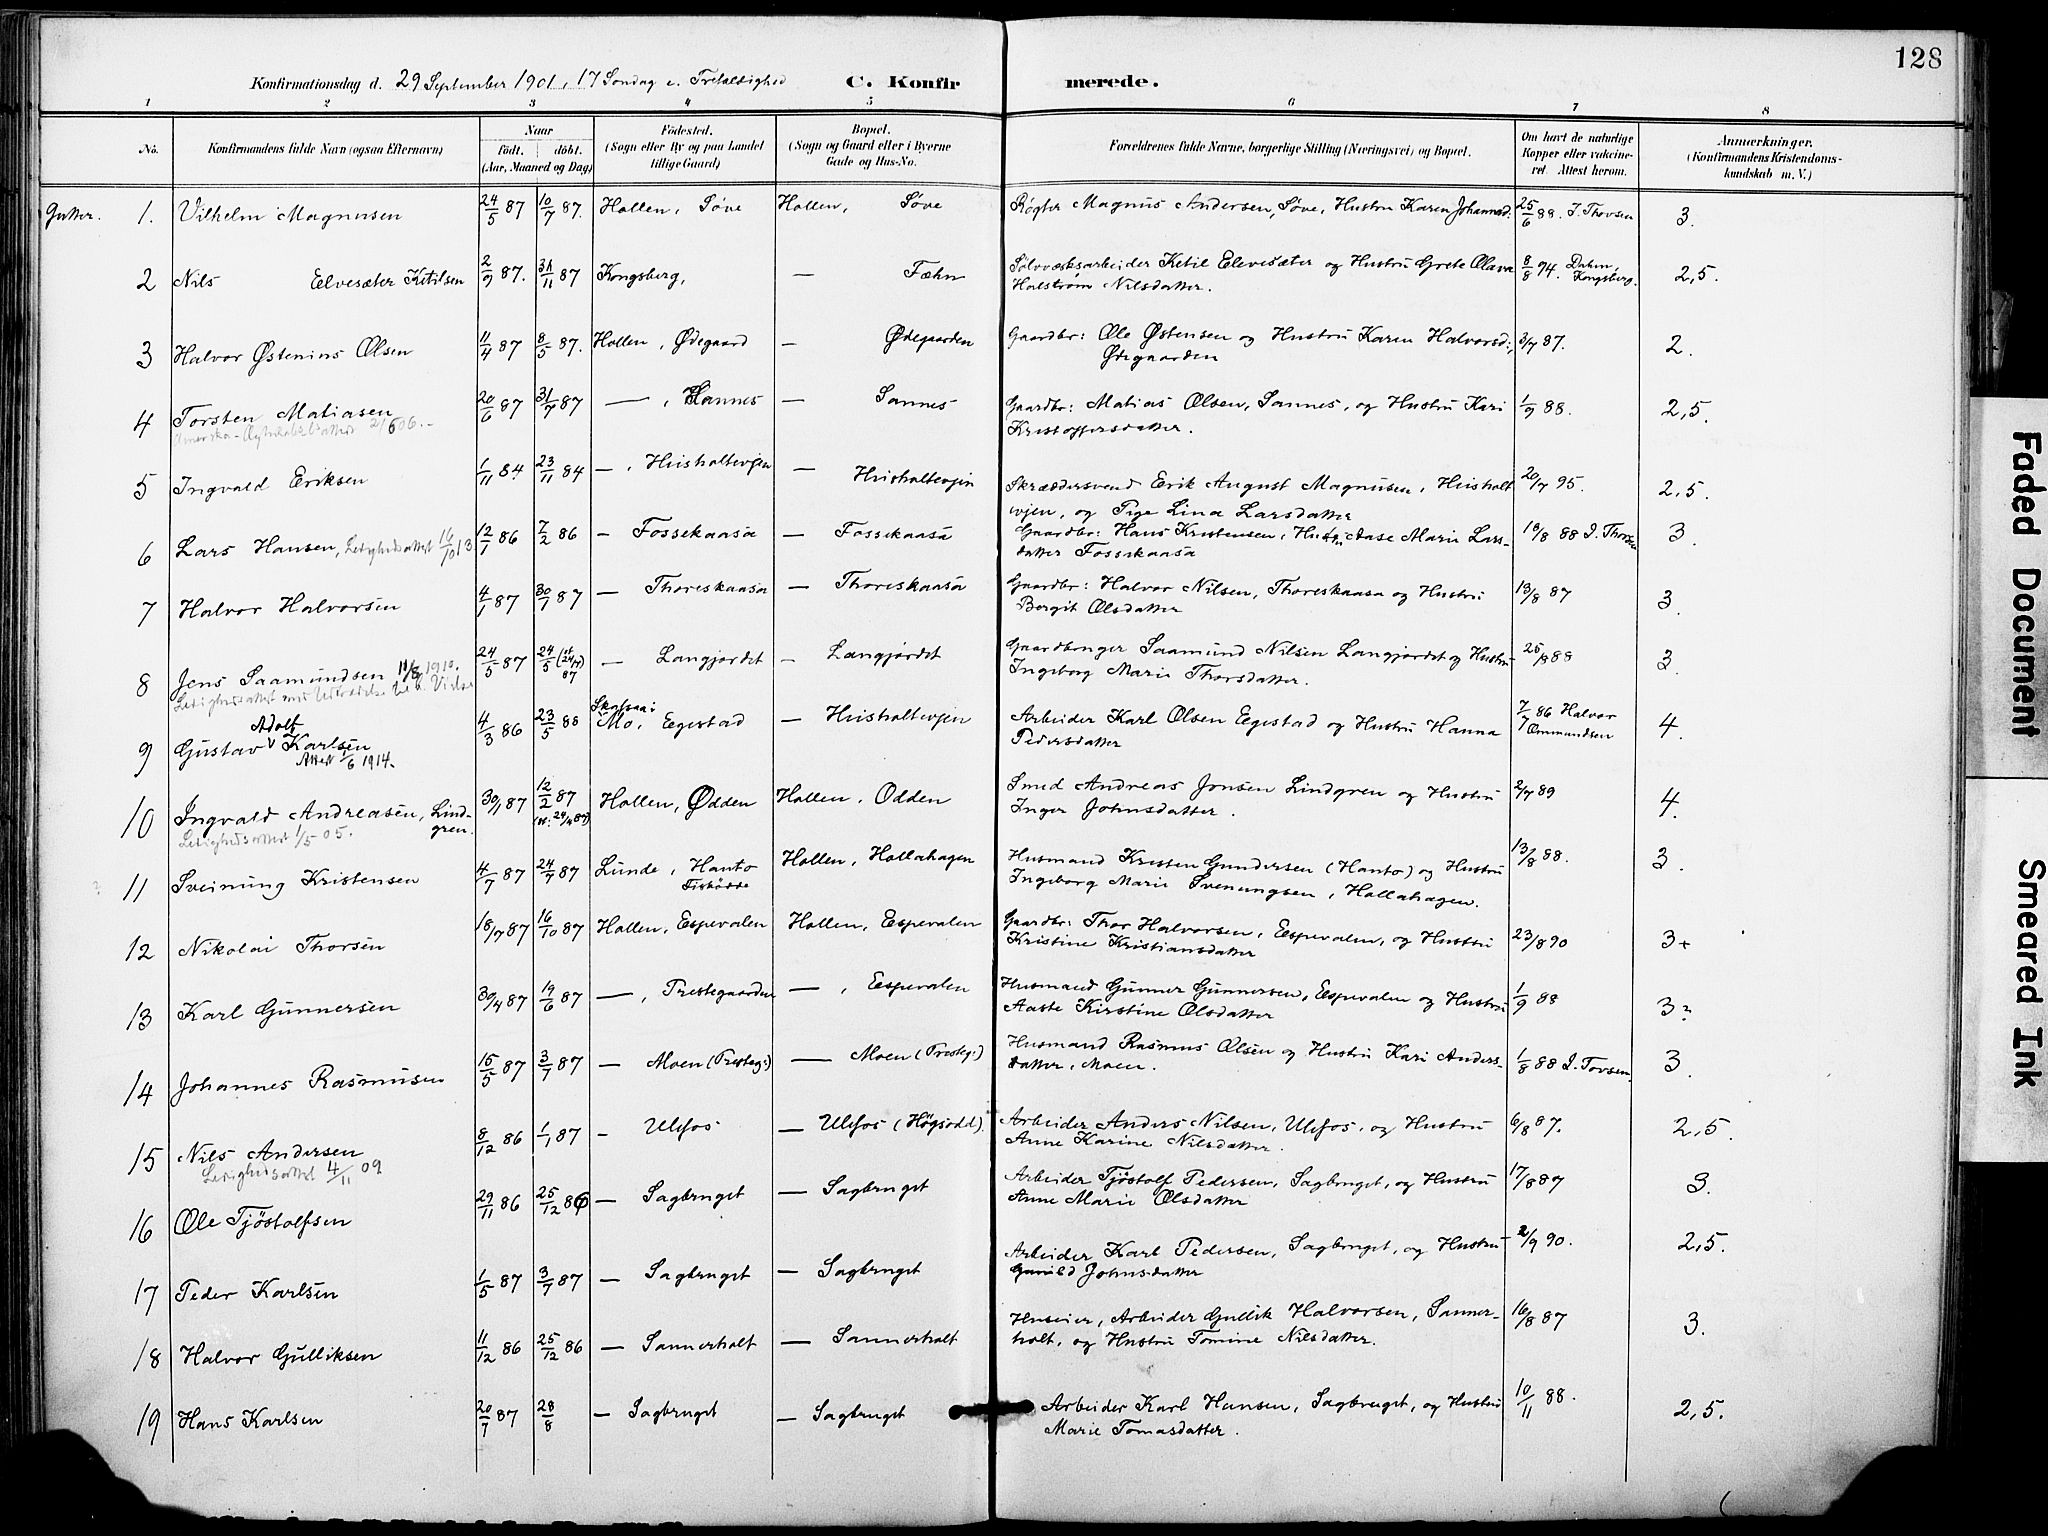 128
Konfirmationsdag d. 29 September 1901, 17 Søndag e. Trefaldighed C. Konfirmerede.
1 2 3 4 5 6 7 8
No. Konfirmandens fulde Navn (ogsaa Efternavn) Naar født. døbt. (Aar, Maaned og Dag) Fødested. (Sogn eller By og paa Landet tillige Gaard) Bopæl. (Sogn og Gaard eller i Byerne Gade og Hus-No. Forældrenes fulde Navne, borgerlige Stilling (Næringsvei) og Bopæl. Om havt de naturlige Kopper eller vakcineret. Attest herom. Anmerkninger. (Konfirmandens Kristendomskundskab m. V.)
Gutter. 1. Vilhelm Magnusen 24/5 87 10/7 87. Hollen, Søve Hollen, Søve Røgter Magnus Andersen, Søve, Hustru Karen Johannesd. 25/6 88. I. Thorsen 3.
2 Nils Elvesæter Ketilsen 2/9 87. 31/11 87 Kongsberg, — Fæhn Sølvværksarbeider Ketil Elevesæter og Hustru Grete Olava
Halstrøm Nilsdatter. 8/8 94. Dahm, Kongsberg. 2,5.
3 Halvor Østenius Olsen 11/4 87 8/5 87. Hollen, Ødegaard — Ødegaarden Gaardbr: Ole Østensen og Hustru Karen Halvorsd:,
Ødegaarden 3/7 87. 2.
4 Torsten Matiasen 20/6 87 31/7 87 —, Sannes — Sannes Gaardbr: Matias Olsen, Sannes, og Hustru Kari
Kristoffersdatter. 1/9 88. 2,5.
5 Ingvald Eriksen 1/11 84 23/11 84 —, Husholtevjen — Husholtevjen Skræddersvend Erik August Magnusen, Husholt
evjen, og Pige Lina Larsdatter 20/7 95. 2,5.
6 Lars Hansen, Ledighedsattest 16/10 13 12/1 86 7/2 86 — Fossekaasa — Fossekaasa Gaardbr: Hans Kristensen, Hustru Aase Marie Lars-
datter Fossekaasa 18/8 88 I. Thorsen 3.
7 Halvor Halvorsen 4/1 87 30/1 87 — Thoreskaasa — Thoreskaasa Gaardbr: Halvor Nilsen, Thoreskaasa og Hustru
Bergit Olsdatter 13/8 87 3.
8 Jens Saamundsen 11/8 1910. 24/5 87 24/5 87 — Langjordet — Langjordet Gaardbruger Saamund Nilsen Langjordet og Hustru
Ingeborg Marie Thorsdatter. 25/8 88 3.
9 Gustav Adolf Karlsen 4/3 86 23/5 88 Skafsaa: Mo, Egestad — Husholtevjen Arbeider Karl Olsen Egestad og Hustru Hanna
Pedersdatter 7/7 86 Halvor Ommundsen 4.
Attest 1/6 1914.
10 Ingvald Andreasen, Lindgren. 30/1 87 12/2 87 Hollen, Odden Hollen, Odden Smed Andreas Jonsen Lindgren og Hustru
Inger Johnsdatter. 2/7 89 4.
Ledighedsattest 1/5 05.
11 Sveinung Kristensen 4/7 87 24/7 87 Lunde, Hanto Hollen, Hollahagen Husmand Kristen Gundersen (Hanto) og Hustru
Ingeborg Marie Svenungsen, Hollahagen. 13/8 88. 3.
12 Nikolai Thorsen 18/7 87 16/10 87 Hollen, Espevalen Hollen, Espevalen Gaardbr: Thor Halvorsen, Espevalen, og Hustru
Kristine Kristiansdatter 23/8 90 3+
13 Karl Gunnersen 30/4 87 19/6 87 —, Prestegaarden —, Espevalen Husmand Gunner Gunnersen, Espevalen og Hustru
Aaste Kirstine Olsdatter 1/9 88 3?
14 Johannes Rasmusen 15/5 87 3/7 87 — Moen (Presteg:) — Moen (Presteg:) Husmand Rasmus Olsen og Hustru Kari Anders-
datter, Moen. 1/8 88 I. Torsen. 3.
15 Nils Andersen 8/12 86 1/1 87 — Ulefos — Ulefos (Høgsodd) Arbeider Anders Nilsen, Ulefos, og Hustru
Anne Karine Nilsdatter. 6/8 87. 2,5.
Ledighedsattest 4/11 09
16 Ole Tjøstolfsen 29/11 86 25/12 86 — Sagbruget — Sagbruget Arbeider Tjøstolf Pedersen, Sagbruget, og Hustru
Anne Marie Olsdatter 17/8 87 3.
17 Peder Karlsen 1/5 87 3/7 87 — Sagbruget — Sagbruget Arbeider Karl Pedersen, Sagbruget, og Hustru
Gunild Johnsdatter 2/9 90. 2,5.
18 Halvor Gulliksen 11/12 86 25/12 86 — Sannerholt — Sannerholt Huseier, Arbeider Gullik Halvorsen, Sanner-
holt, og Hustru Tomine Nilsdatter. 16/8 87 3.
19 Hans Karlsen 20/7 87 28/8 — Sagbruget — Sagbruget Arbeider Karl Hansen, Sagbruget, og Hustru
Marie Tomasdatter. 10/11 88. 2,5.
Faded Document
Smeared Ink